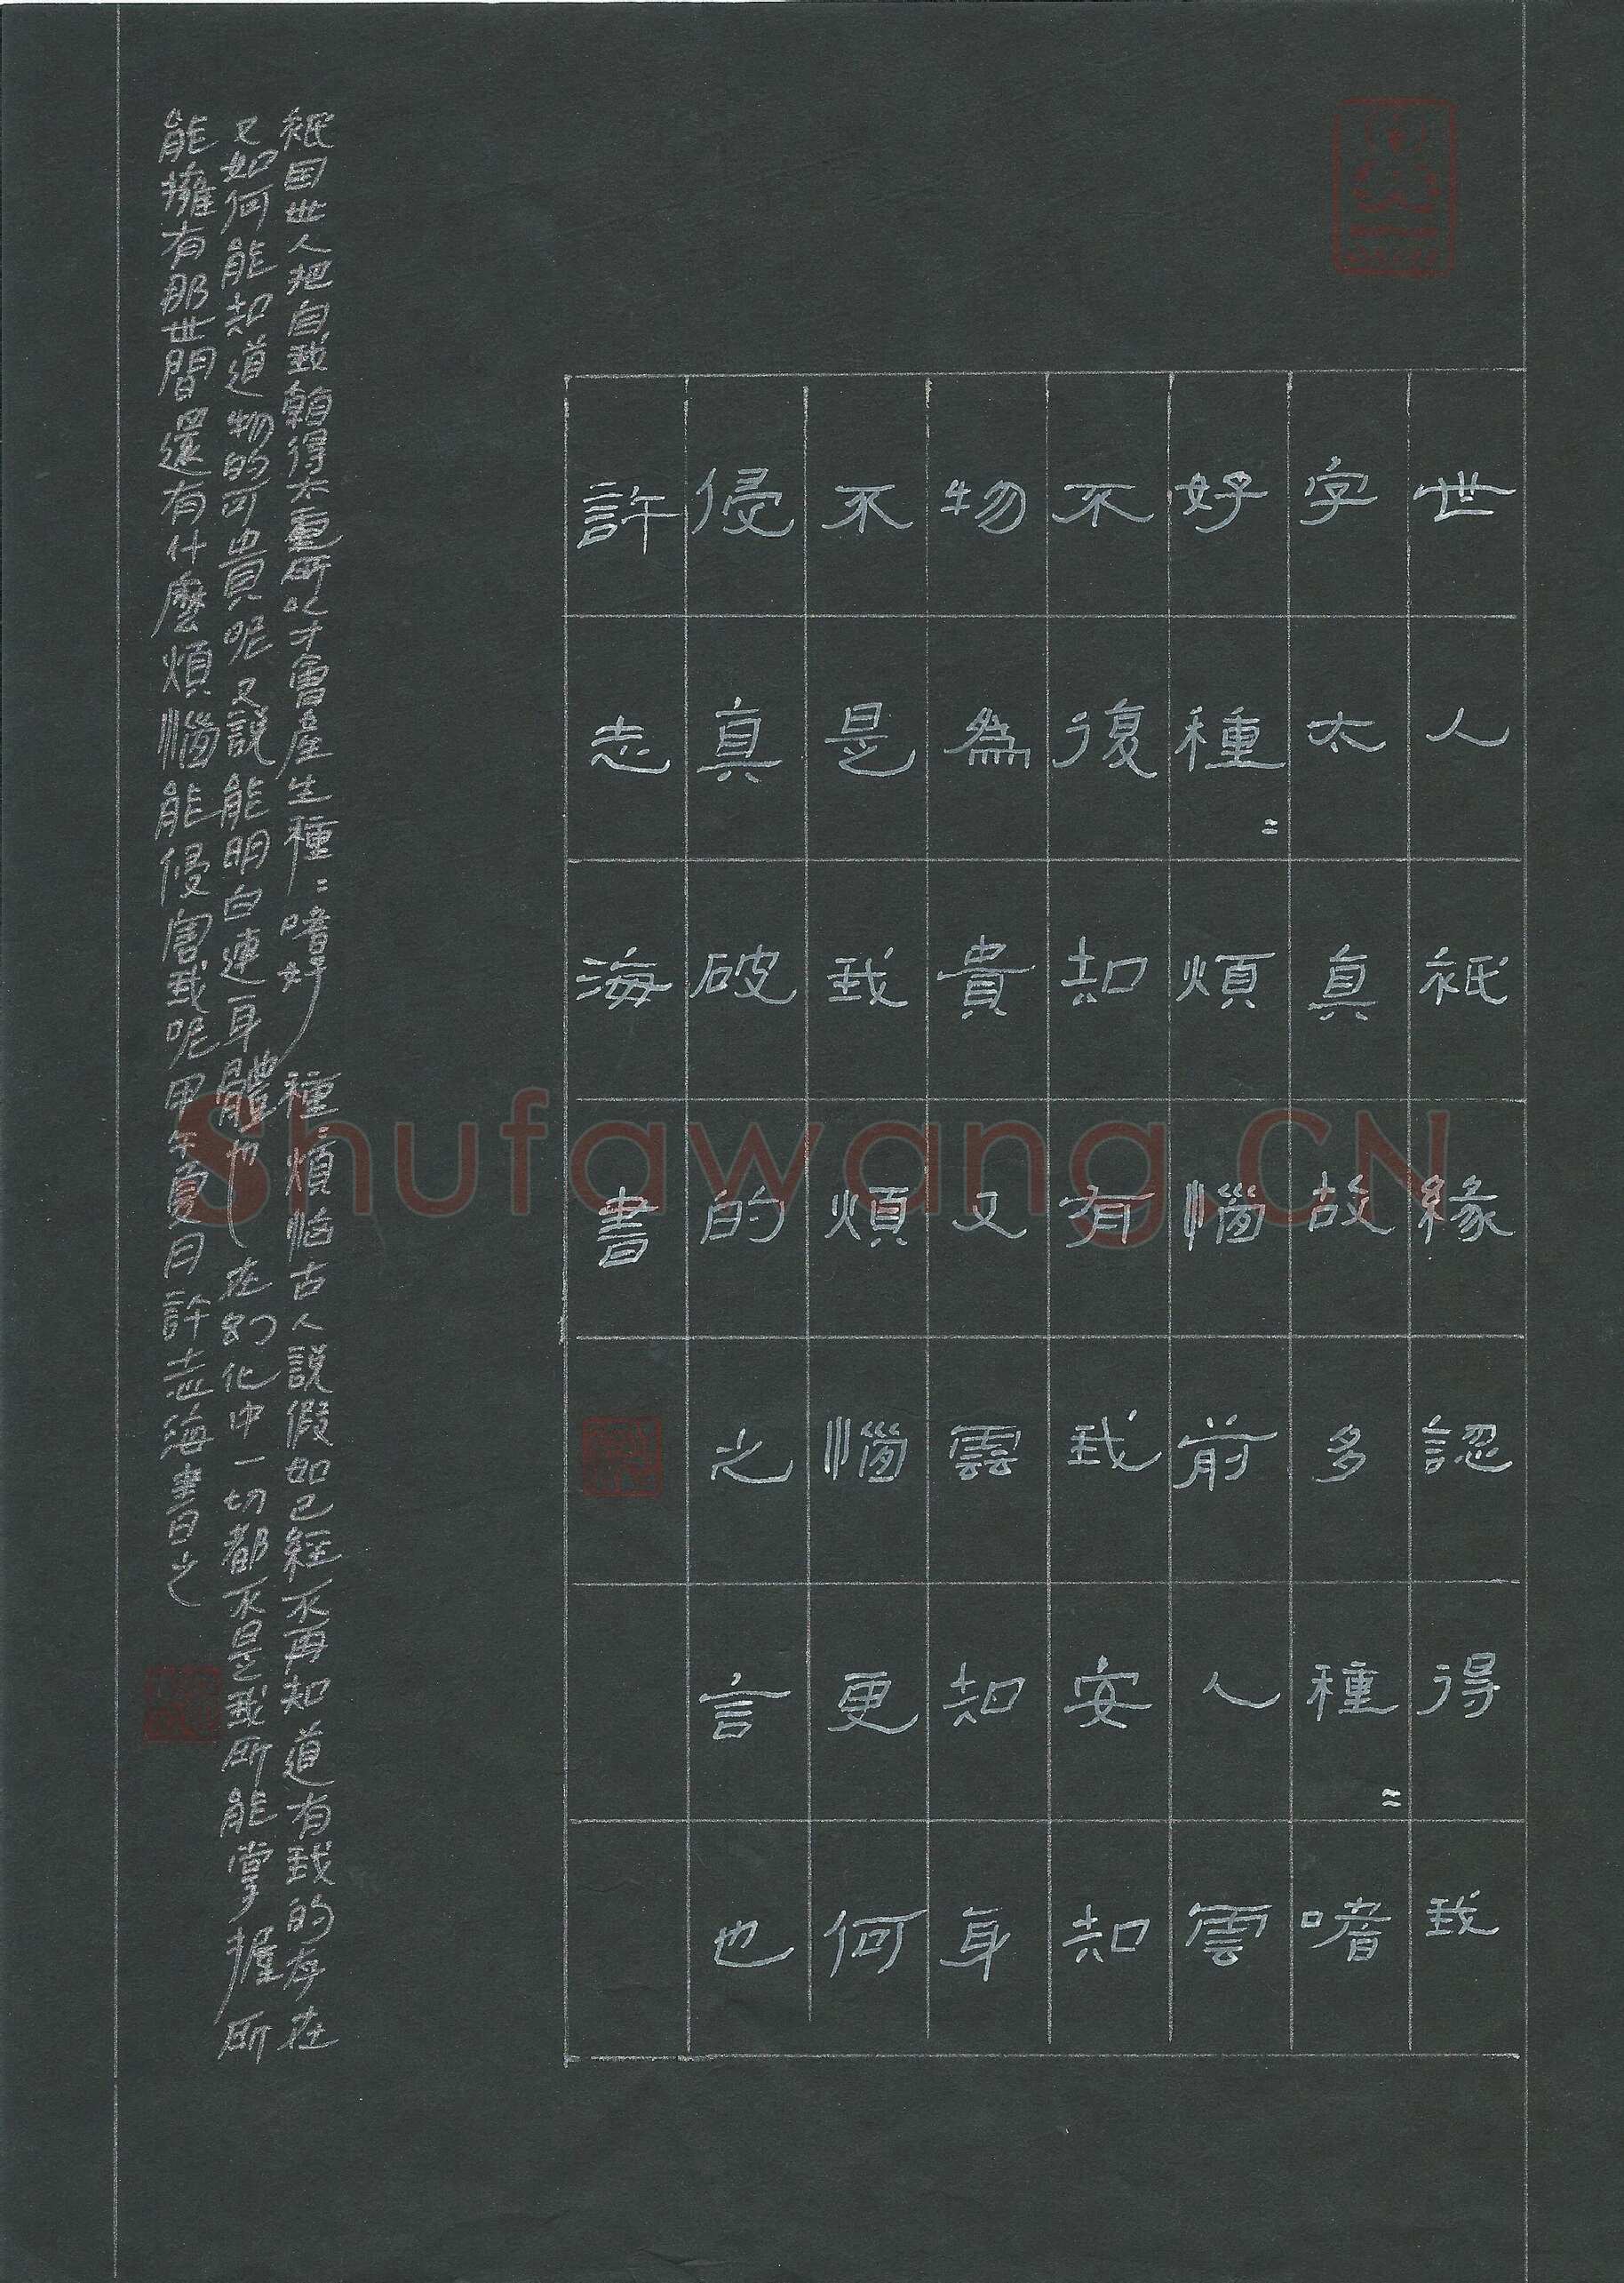 世人祇緣認得我
字太真故多種〻嗜
好種〻煩惱前人雲
不復知有我安知
物為貴又雲知身
不是我煩惱更何
侵真破的之言也
許志海書
祇因世人把自我看得太重所以才會產生種〻嗜好種〻煩惱古人說假如已經不再知道有我的存在
又如何能知道物的可貴呢又說能明白連身體也在幻化中一切都不是我所能掌握所
能擁有那世間還有什麼煩惱能侵害我呢甲午夏月許志海書之
Shufawang.CN